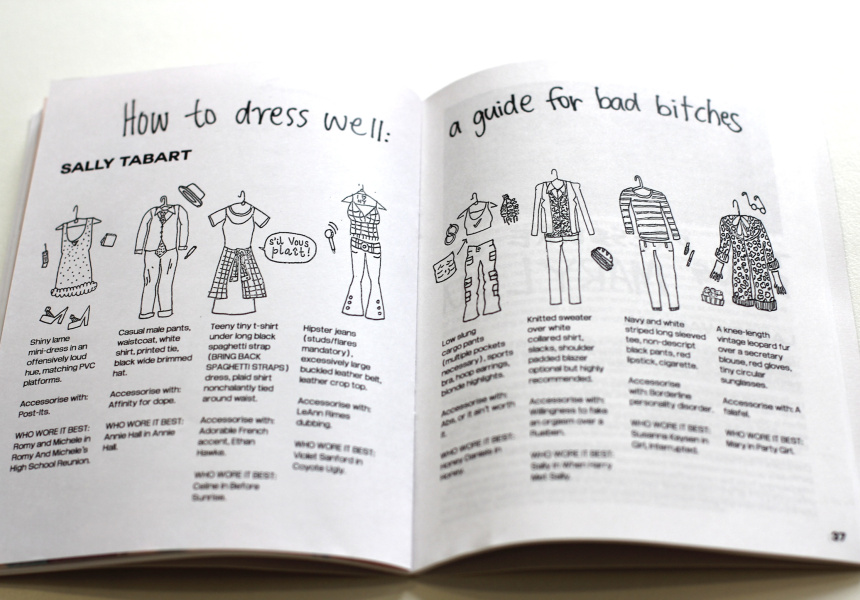 How to dress well:
a guide for bad bitches
SALLY TABART
s'il vous
plaît!
Shiny lame
mini-dress in an
offensively loud
hue, matching PVC
platforms.
Accessorise with:
Post-Its.
WHO WORE IT BEST:
Romy and Michele in
Romy And Michele's
High School Reunion.
Casual male pants,
waistcoat, white
shirt, printed tie,
black wide brimmed
hat.
Accessorise with:
Affinity for dope.
WHO WORE IT BEST:
Annie Hall in Annie
Hall.
Teeny tiny t-shirt
under long black
spaghetti strap
(BRING BACK
SPAGHETTI STRAPS)
dress, plaid shirt
nonchalantly tied
around waist.
Accessorise with:
Adorable French
accent, Ethan
Hawke.
WHO WORE IT BEST:
Celine in Before
Sunrise.
Hipster jeans
(studs/flares
mandatory),
excessively large
buckled leather belt,
leather crop top.
Accessorise with:
LeAnn Rimes
dubbing.
WHO WORE IT BEST:
Violet Sanford in
Coyote Ugly.
Low slung
cargo pants
(multiple pockets
necessary), sports
bra, hoop earrings,
blonde highlights.
Accessorise with:
Abs, or it ain't worth
it.
WHO WORE IT BEST:
Honey Daniels in
Honey.
Knitted sweater
over white
collared shirt,
slacks, shoulder
padded blazer
optional but highly
recommended.
Accessorise with:
Willingness to fake
an orgasm over a
Rueben.
WHO WORE IT BEST:
Sally in When Harry
Met Sally.
Navy and white
striped long sleeved
tee, non-descript
black pants, red
lipstick, cigarette.
Accessorise
with: Borderline
personality disorder.
WHO WORE IT BEST:
Susanna Kaysen in
Girl, Interrupted.
A knee-length
vintage leopard fur
over a secretary
blouse, red gloves,
tiny circular
sunglasses.
Accessorise with: A
falafel.
WHO WORE IT BEST:
Mary in Party Girl.
37